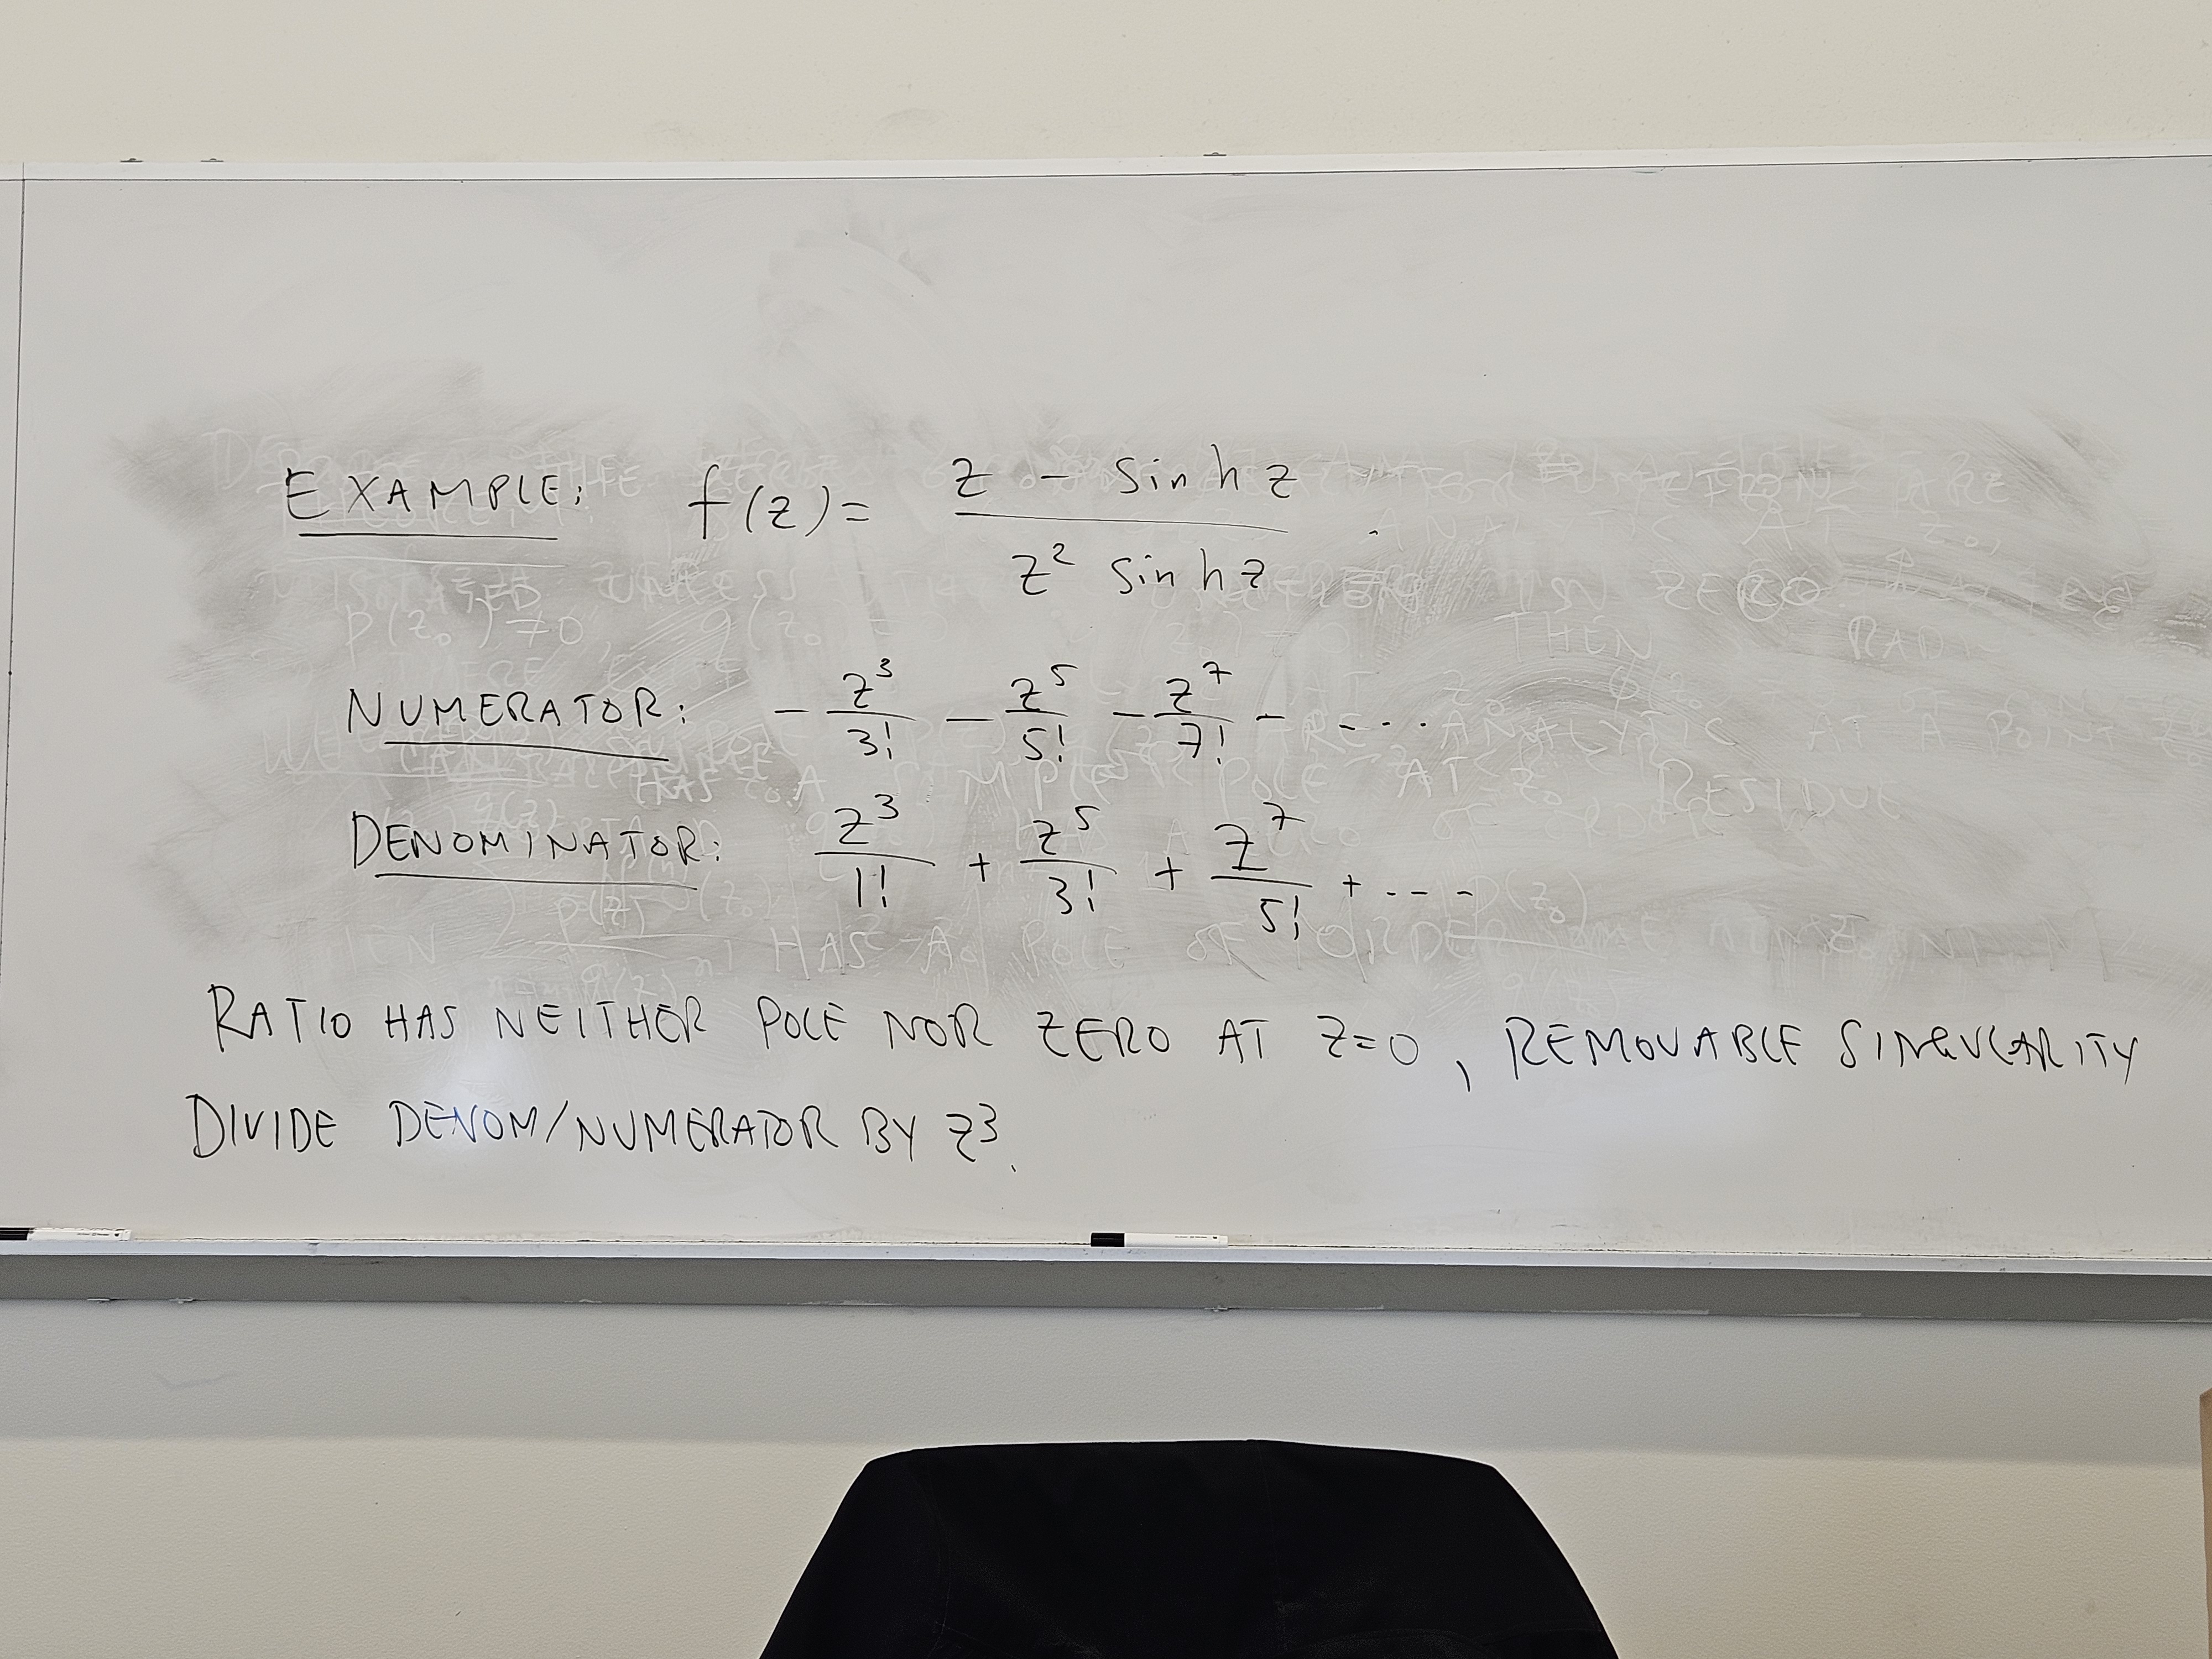 EXAMPLE: f(z) = (z - sinh z) / (z² sinh z).
NUMERATOR: - z³/3! - z⁵/5! - z⁷/7! - ....
DENOMINATOR: z³/1! + z⁵/3! + z⁷/5! + ----
RATIO HAS NEITHER POLE NOR ZERO AT Z=0, REMOVABLE SINGULARITY
DIVIDE DENOM/NUMERATOR BY z3.